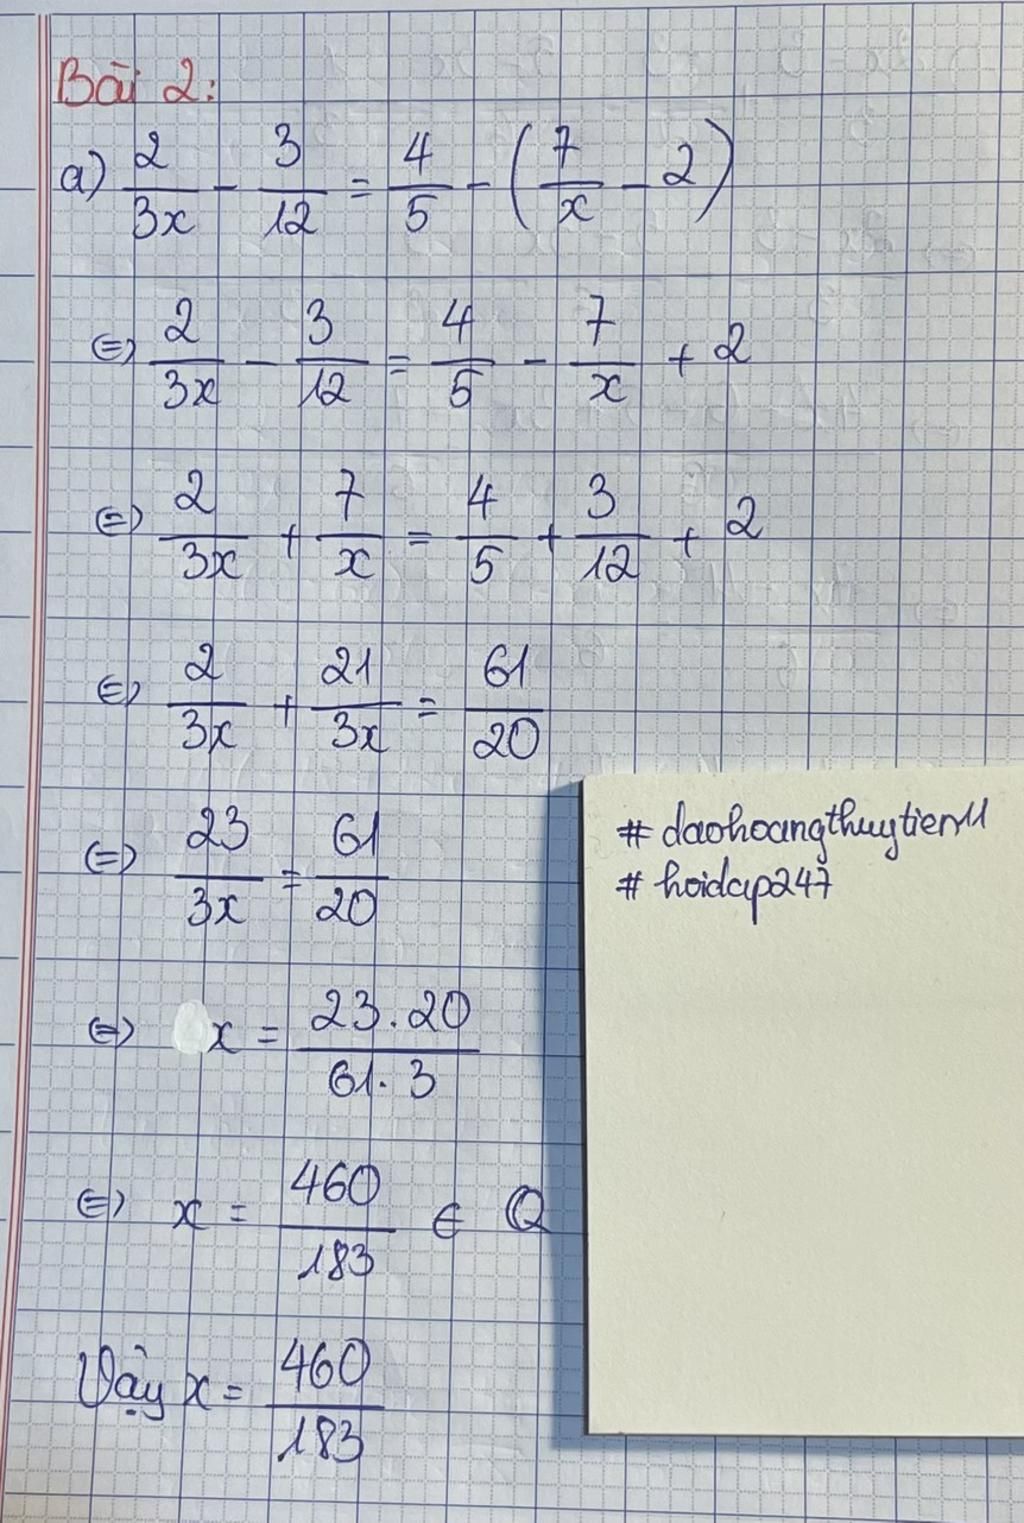 Bài 2:
a) 2/3x - 3/12 = 4/5 - (7/x - 2)
⇔ 2/3x - 3/12 = 4/5 - 7/x + 2
⇔ 2/3x + 7/x = 4/5 + 3/12 + 2
⇔ 2/3x + 21/3x = 61/20
⇔ 23/3x = 61/20
⇔ x = 23.20/61.3
⇔ x = 460/183 ∈ Q
Vậy x = 460/183
# daohoangthuytien11
# hoidap247